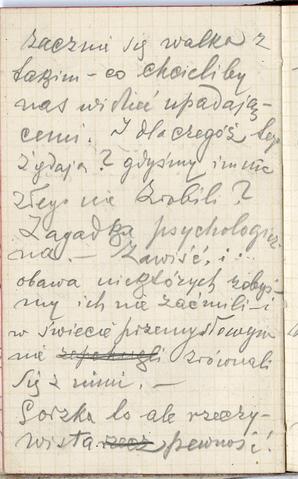 zacznie się walka z
takim – co chcieliby
nas widzieć upadają-
cemi. I dlaczegóż tego
żądają? gdyśmy im nic
złego nie zrobili?
Zagadka psychologicz
na. – Zawiść, i ..
obawa niektórych żebyś-
my ich nie zaćmili – i
w świecie przemysłowym
nie zrównali
się z nimi. –
Gorzka to ale rzeczy-
wista rzecz pewność!